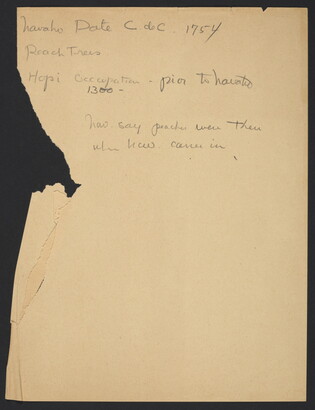 Navaho Date C de C. 1754
Peach Trees
Hopi Occupation - pior to Navaho
1300 -
Nav. say peaches were there
when Nav. came in